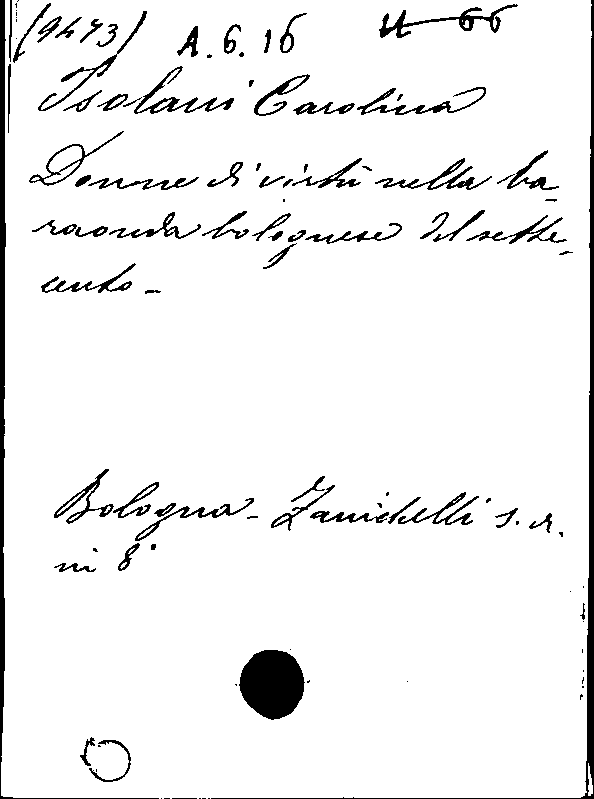 (9473) A.6.16 U 66
Isolani Carolina
Donne di virtù nella ba-
raonda bolognese del sette-
cento -
Bologna - Zanichelli s. a.
in 8°